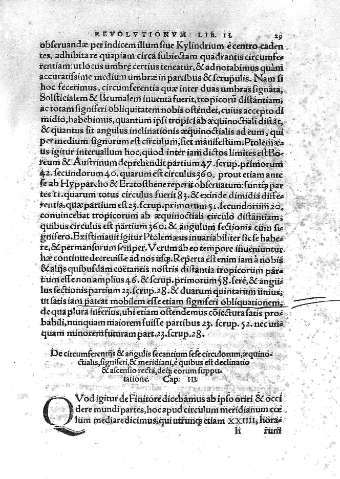 REVOLVTIONVM LIB. II. 29
obseruandæ per indicem illum siue Kylindrium è centro caden
tes, adhibita re quapiam circa subiectam quadrantis circumfe
rentiam: ut locus umbræ certius teneatur, & adnotabimus quàm
accuratissime mediũ umbræ in partibus & scrupulis. Nam si
hoc fecerimus, circumferentia quæ inter duas umbras signata,
Solsticialem & Brumalem inuenta fuerit, tropicorũ distantiam,
ac totam signiferi obliquitatem nobis ostendet, cuius accepto di
midio, habebimus, quantum ipsi tropici ab æquinoctiali distãt,
& quantus sit angulus inclinationis æquinoctialis ad eum, qui
per medium signorum est circulum, fiet manifestum. Ptolemæ
us igitur interuallum hoc, quod inter iam dictos limites est Bo-
reum & Austrinum deprehendit partium 47. scrup. primorum
42. secundorum 40. quarum est circulus 360. prout etiam ante
se ab Hyparcho & Eratosthene reperit obseruatum: suntq́; par
tes 11. quarum totus circulus fuerit 83. & exinde dimidia diffe-
rentia, quæ partium est 23. scrup. primorum 51. secundorum 20,
conuincebat tropicorum ab æquinoctiali circulo distantiam,
quibus circulus est partium 360. & angulum sectionis cum si-
gnifero. Existimauit igitur Ptolemæus inuariabiliter sic se habe
re, & permansurum semper. Verum ab eo tempore inueniuntur
hæ continue decreuisse ad nos usq́;. Reperta est enim iam à nobis
& alijs quibusdam coætaneis nostris distantia tropicorum par
tium esse non amplius 46. & scrup. primorum 58. ferè, & angu-
lus sectionis partium 23. scrup. 28. & duarum quintarum unius,
ut satis iam pateat mobilem esse etiam signiferi obliquationem,
de qua plura inferius, ubi etiam ostendemus cõiectura satis pro
babili, nunquam maiorem fuisse partibus 23. scrup. 52. nec un-
quam minorem futuram part. 23. scrup. 28.
De circumferentijs & angulis secantium sese circulorum, æquino-
ctialis, signiferi, & meridiani, è quibus est declinatio
& ascensio recta, deq́; eorum suppu
tatione. Cap. III.
QVod igitur de Finitore dicebamus ab ipso oriri & occi
dere mundi partes, hoc apud circulum meridianum cœ
lum mediare dicimus, qui utrunq́; etiam XXIIII, horæ
h rum